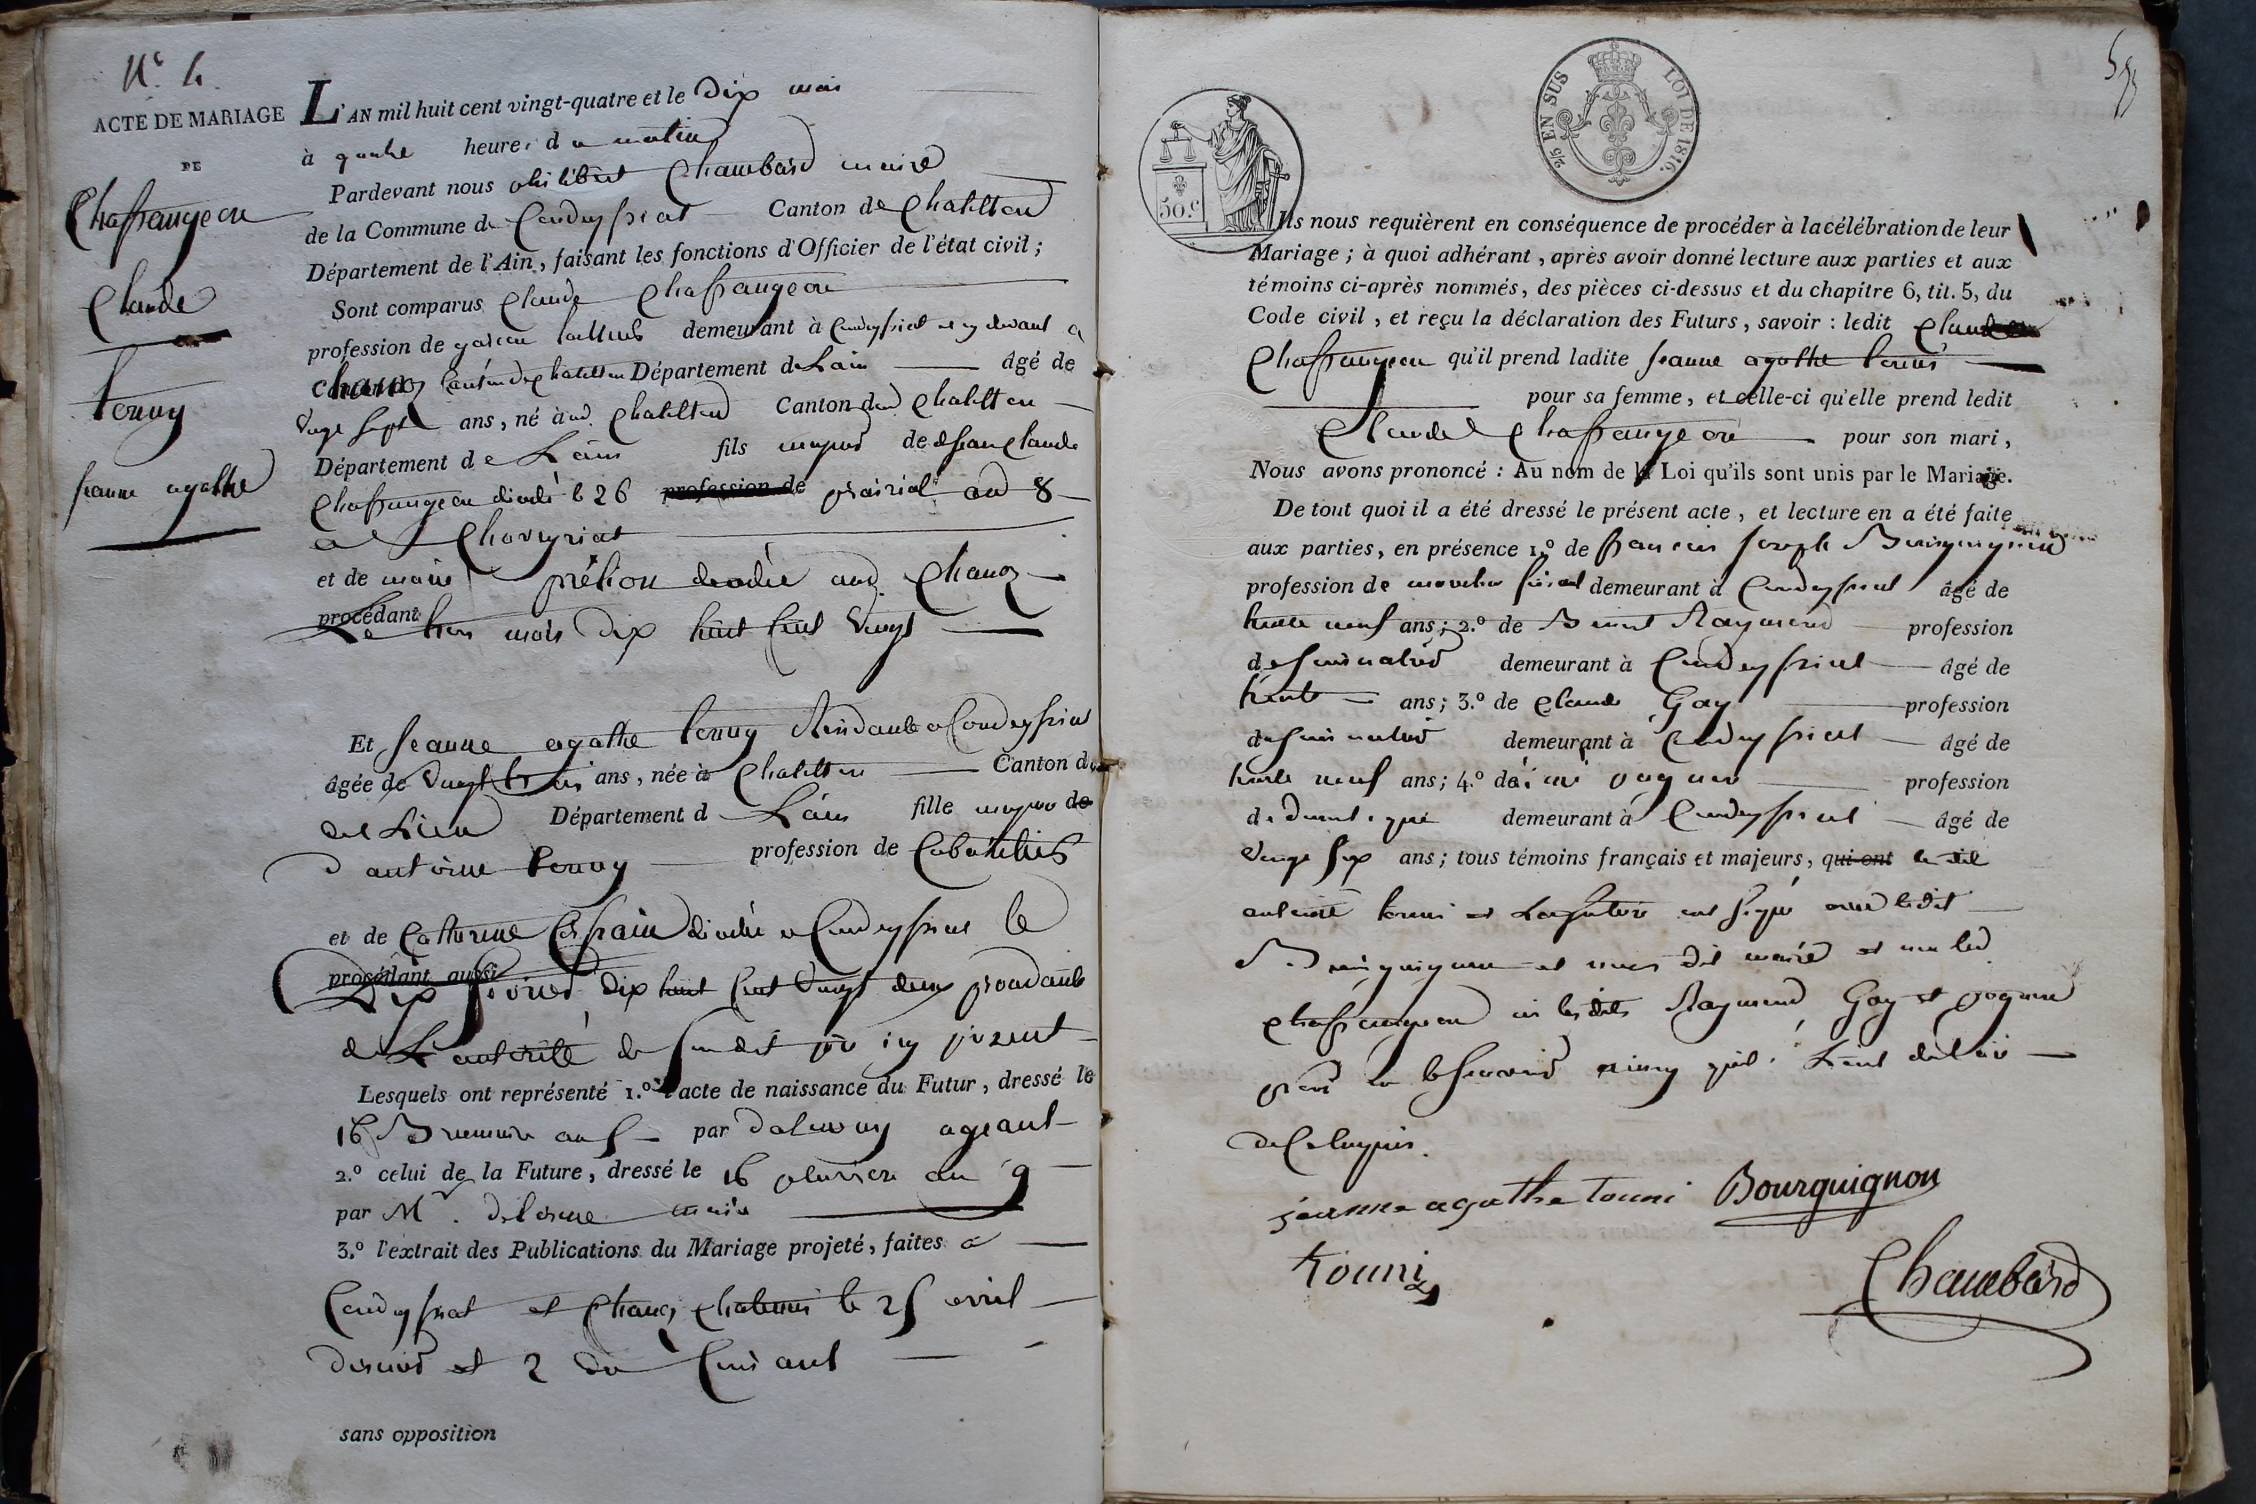 N.° 4.
ACTE DE MARIAGE
DE
Chaffrangeon
Claude
touny
jeanne agathe
L'AN mil huit cent vingt-quatre et le Dix mai
à quatre heures du matin
Pardevant nous philibert Chambard maire
de la Commune de Condeyssiat Canton de Chatillon
Département de l'Ain, faisant les fonctions d'Officier de l'état civil;
Sont comparus Claude Chaffrangeon
profession de garcon demeurant à Condeyssiat et cy devant a
Chanoz Canton de Chatillon Département de Lain âgé de
vingt sept ans, né à Chatillon Canton de Chatillon
Département de Lain fils majeur de Jean Claude
Chaffrangeon décédé le 26 profession de prairial an 8
a Chaveyriat
et de marie prélion décédée a Chanoz
procédant
Le trois mars dix huit cent vingt
Et jeanne agathe touny Résidante a Condeyssiat
âgée de vingt trois ans, née à Chatillon Canton du
dit Lieu Département de Lain fille majeure de
d'antoine touny profession de Cabaretier
et de Catherine décédée a Condeyssiat le
procédant aussi
Dix février dix huit cent vingt deux procédante
de L'autorité de son dit père icy présent
Lesquels ont représenté 1.° l'acte de naissance du Futur, dressé le
16 Brumaire an 5 par ageant
2.° celui de la Future, dressé le 16 pluviose an 9
par M.r delorme maire
3.° l'extrait des Publications du Mariage projeté, faites a
Condeyssiat et Chanoz Chatenai le 25 avril
dernier et 2 du Courant
sans opposition
50.c
2/5 EN SUS
LOI DE 1816.
Ils nous requièrent en conséquence de procéder à la célébration de leur
Mariage; à quoi adhérant, après avoir donné lecture aux parties et aux
témoins ci-après nommés, des pièces ci-dessus et du chapitre 6, tit. 5, du
Code civil, et reçu la déclaration des Futurs, savoir: ledit Claude
Chaffrangeon qu'il prend ladite jeanne agathe touni
pour sa femme, et celle-ci qu'elle prend ledit
Claude Chaffrangeon pour son mari,
Nous avons prononcé: Au nom de la Loi qu'ils sont unis par le Mariage.
De tout quoi il a été dressé le présent acte, et lecture en a été faite
aux parties, en présence 1.° de francois Joseph Bourguignon
profession de demeurant à Condeyssiat âgé de
trente neuf ans; 2.° de Benoit Raymond profession
demeurant à Condeyssiat âgé de
trente ans; 3.° de Claude Gay profession
demeurant à Condeyssiat âgé de
trente neuf ans; 4.° de profession
de domestique demeurant à Condeyssiat âgé de
vingt six ans; tous témoins français et majeurs, qui ont le dit
antoine touni et La future ont signé avec ledit
Bourguignon et nous dit maire et non led.
Chaffrangeon ni lesdits Raymond Gay et
pour ne le savoir ainsy qu'ils L'ont déclaré
de Ce Requis.
jeanne agathe touni Bourguignon
touni
Chambard